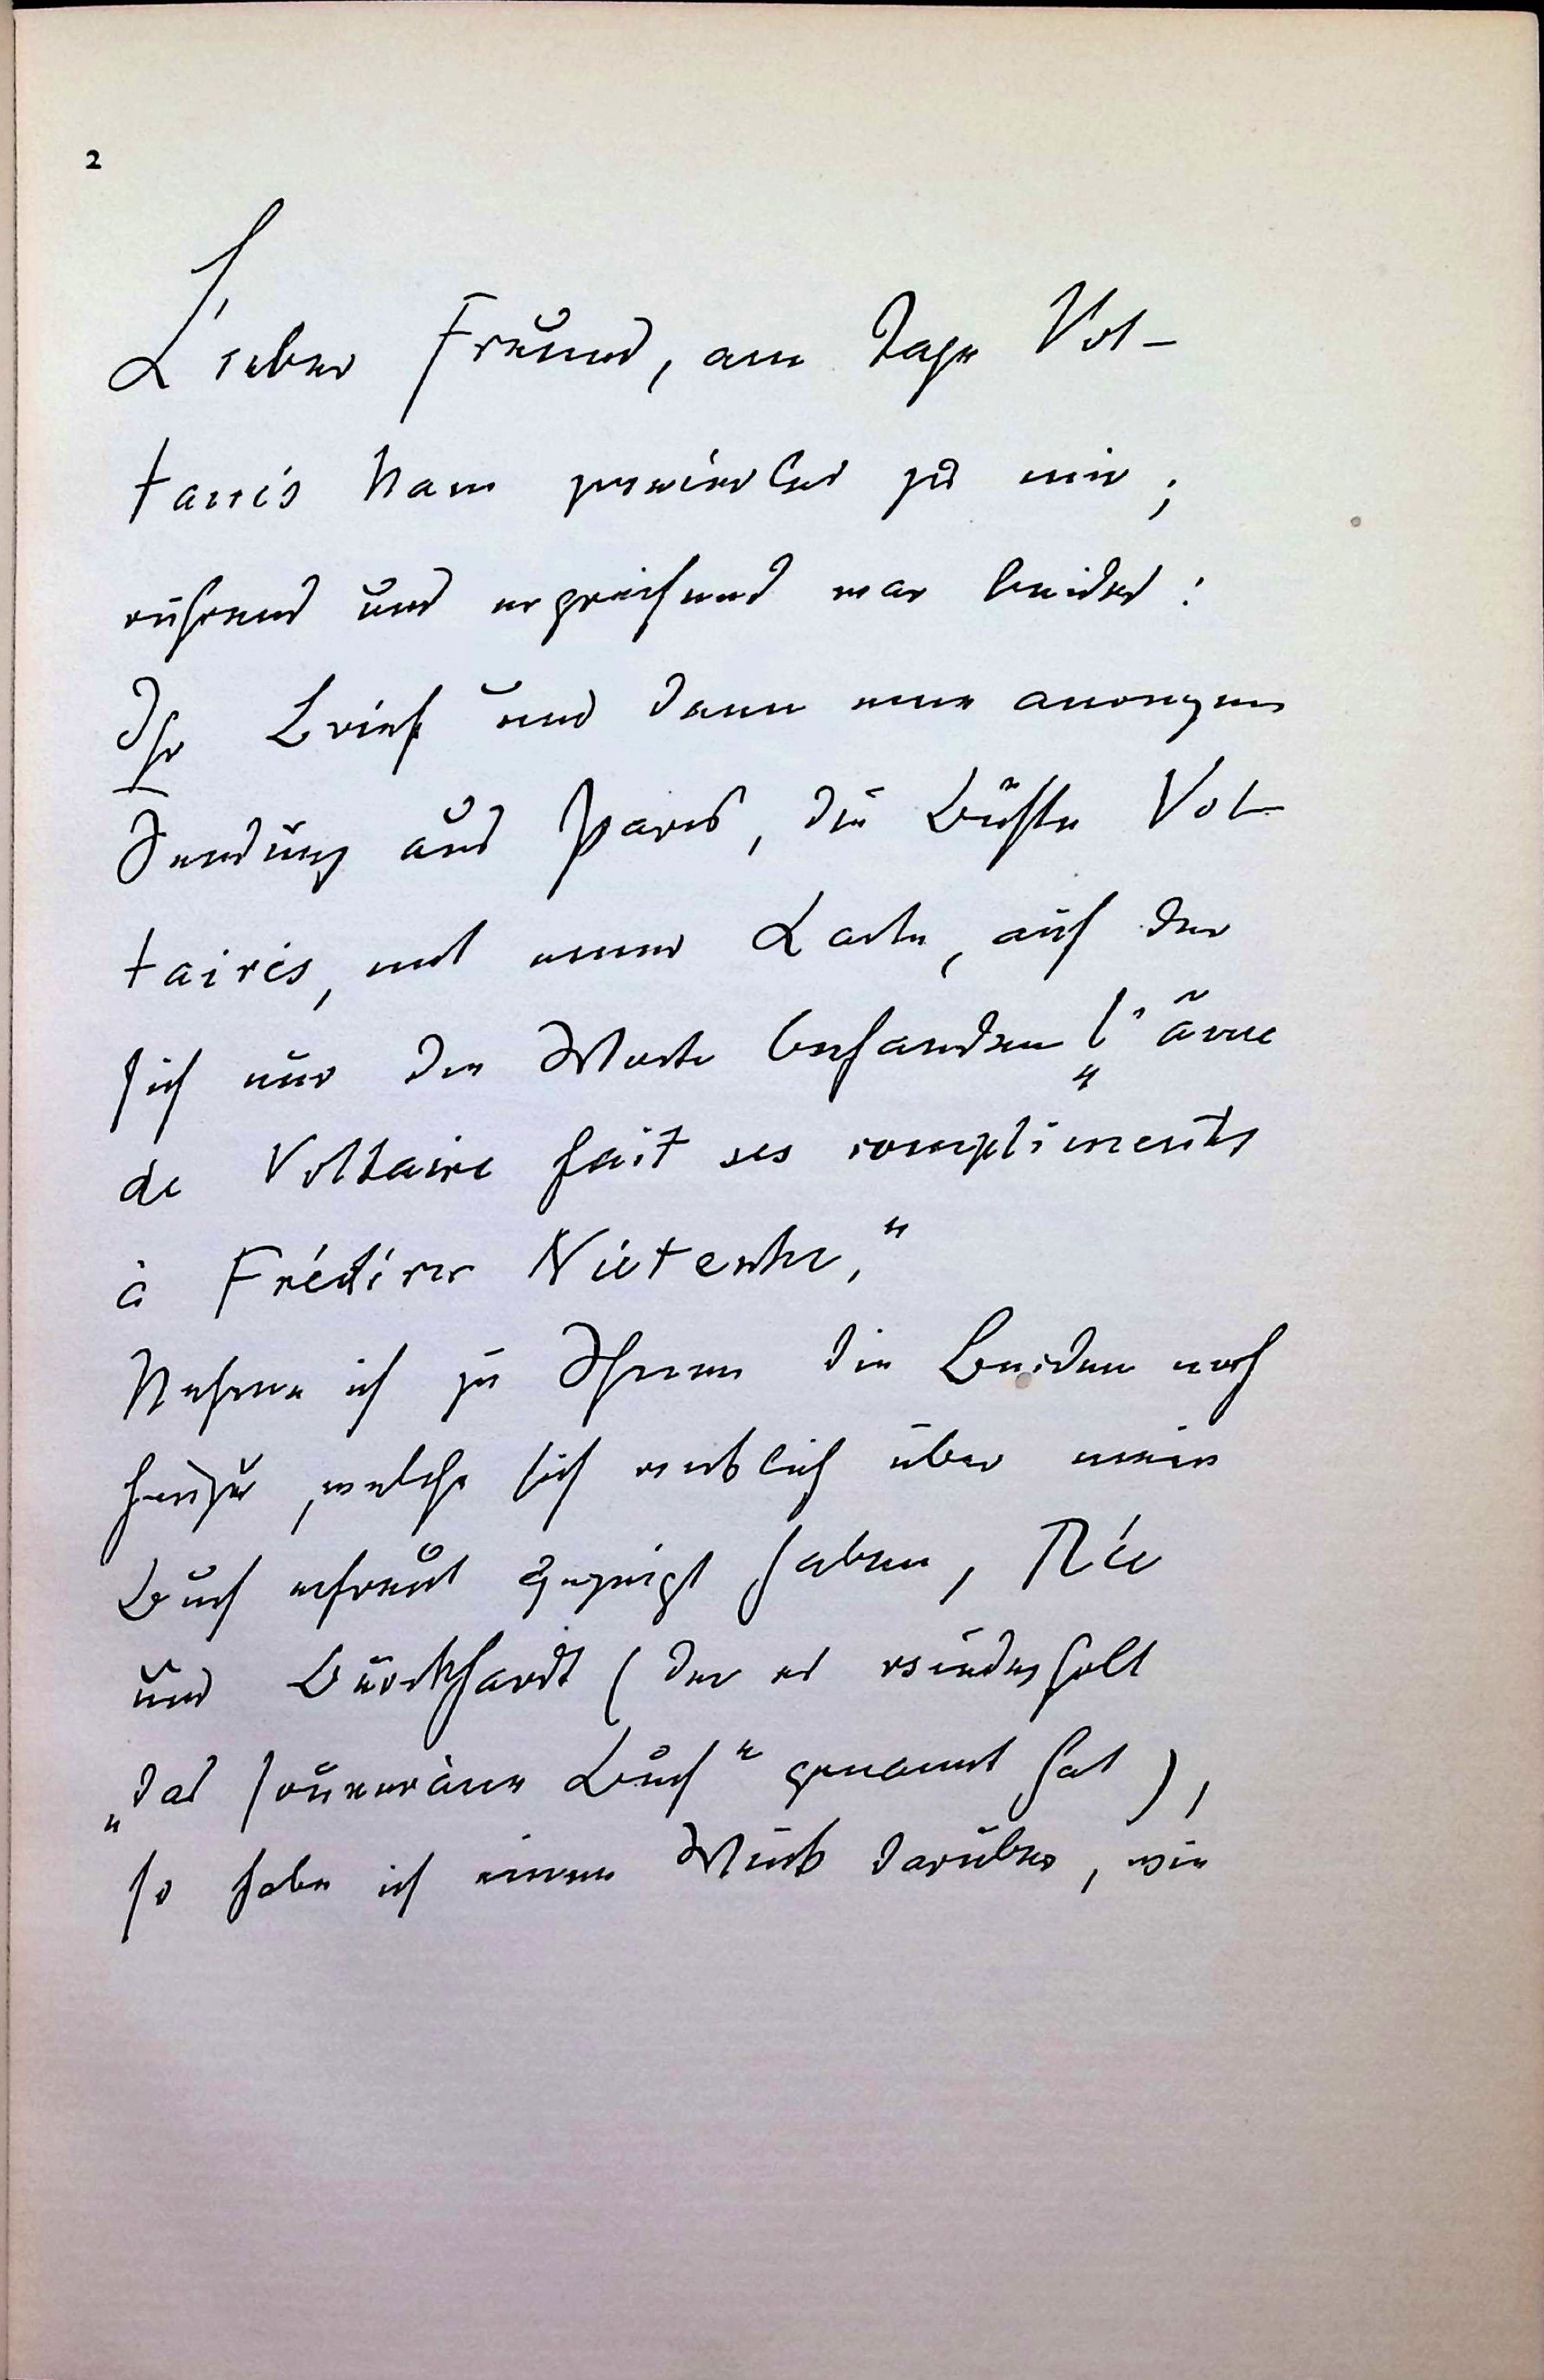 2
Lieber Freund, am Tage Vol-
taires kam zweierlei zu mir;
rührend und ergreifend war beides:
Ihr Brief und dann eine anonyme
Sendung aus Paris, die Büste Vol-
taires, mit einer Karte, auf der
sich nur die Worte befanden „l'âme
de Voltaire fait ses compliments
à Frédéric Nietzsche.“
Nehme ich zu Ihnen die Beiden noch
hinzu, welche sich wirklich über mein
Buch erfreut gezeigt haben, Rée
und Burckhardt (der es wiederholt
„das souveraine Buch“ genannt hat),
so habe ich einen Wink darüber, wie